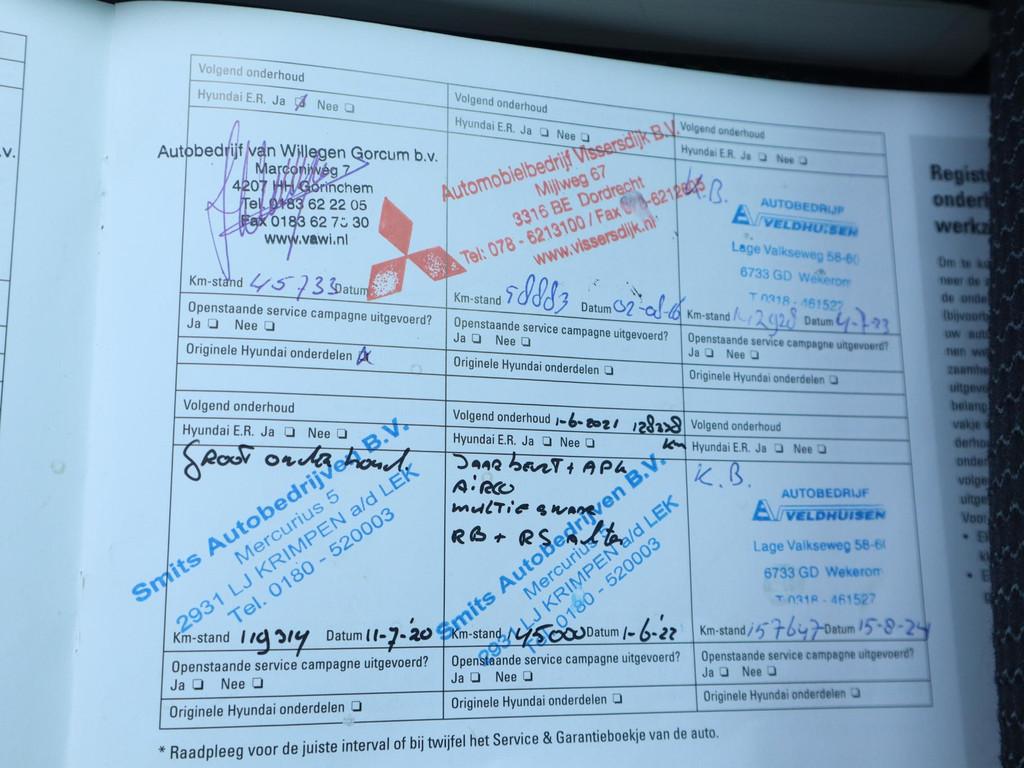 v.
Volgend onderhoud
Hyundai E.R. Ja Nee
Autobedrijf van Willegen Gorcum b.v.
Marconiweg 7
4207 HH Gorinchem
Tel. 0183 62 22 05
Fax 0183 62 73 30
www.vawi.nl
Km-stand 45733 Datum
Openstaande service campagne uitgevoerd?
Ja Nee
Originele Hyundai onderdelen
Volgend onderhoud
Hyundai E.R. Ja Nee
Automobielbedrijf Vissersdijk B.V.
Mijlweg 67
3316 BE Dordrecht
Tel: 078 - 6213100 / Fax
www.vissersdijk.nl
Km-stand 58883 Datum 02-08-16
Openstaande service campagne uitgevoerd?
Ja Nee
Originele Hyundai onderdelen
Volgend onderhoud
Hyundai E.R. Ja Nee
K.B.
AUTOBEDRIJF
VELDHUISEN
Lage Valkseweg 58-60
6733 GD Wekerom
T 0318 - 461527
Km-stand Datum 4-7-23
Openstaande service campagne uitgevoerd?
Ja Nee
Originele Hyundai onderdelen
Volgend onderhoud
Hyundai E.R. Ja Nee
Groot onderhoud.
Smits Autobedrijven B.V.
Mercurius 5
2931 LJ KRIMPEN a/d LEK
Tel. 0180 - 520003
Km-stand 119314 Datum 11-7-'20
Openstaande service campagne uitgevoerd?
Ja Nee
Originele Hyundai onderdelen
Volgend onderhoud 1-6-2021 128278
Hyundai E.R. Ja Nee km
Jaarbeurt + APK
Airco
multisnaar
RB + RS Achter
Smits Autobedrijven B.V.
Mercurius 5
2931 LJ KRIMPEN a/d LEK
Tel. 0180 - 520003
Km-stand 145000 Datum 1-6-'22
Openstaande service campagne uitgevoerd?
Ja Nee
Originele Hyundai onderdelen
Volgend onderhoud
Hyundai E.R. Ja Nee
K.B.
AUTOBEDRIJF
VELDHUISEN
Lage Valkseweg 58-60
6733 GD Wekerom
T 0318 - 461527
Km-stand 157647 Datum 15-8-24
Openstaande service campagne uitgevoerd?
Ja Nee
Originele Hyundai onderdelen
* Raadpleeg voor de juiste interval of bij twijfel het Service & Garantieboekje van de auto.